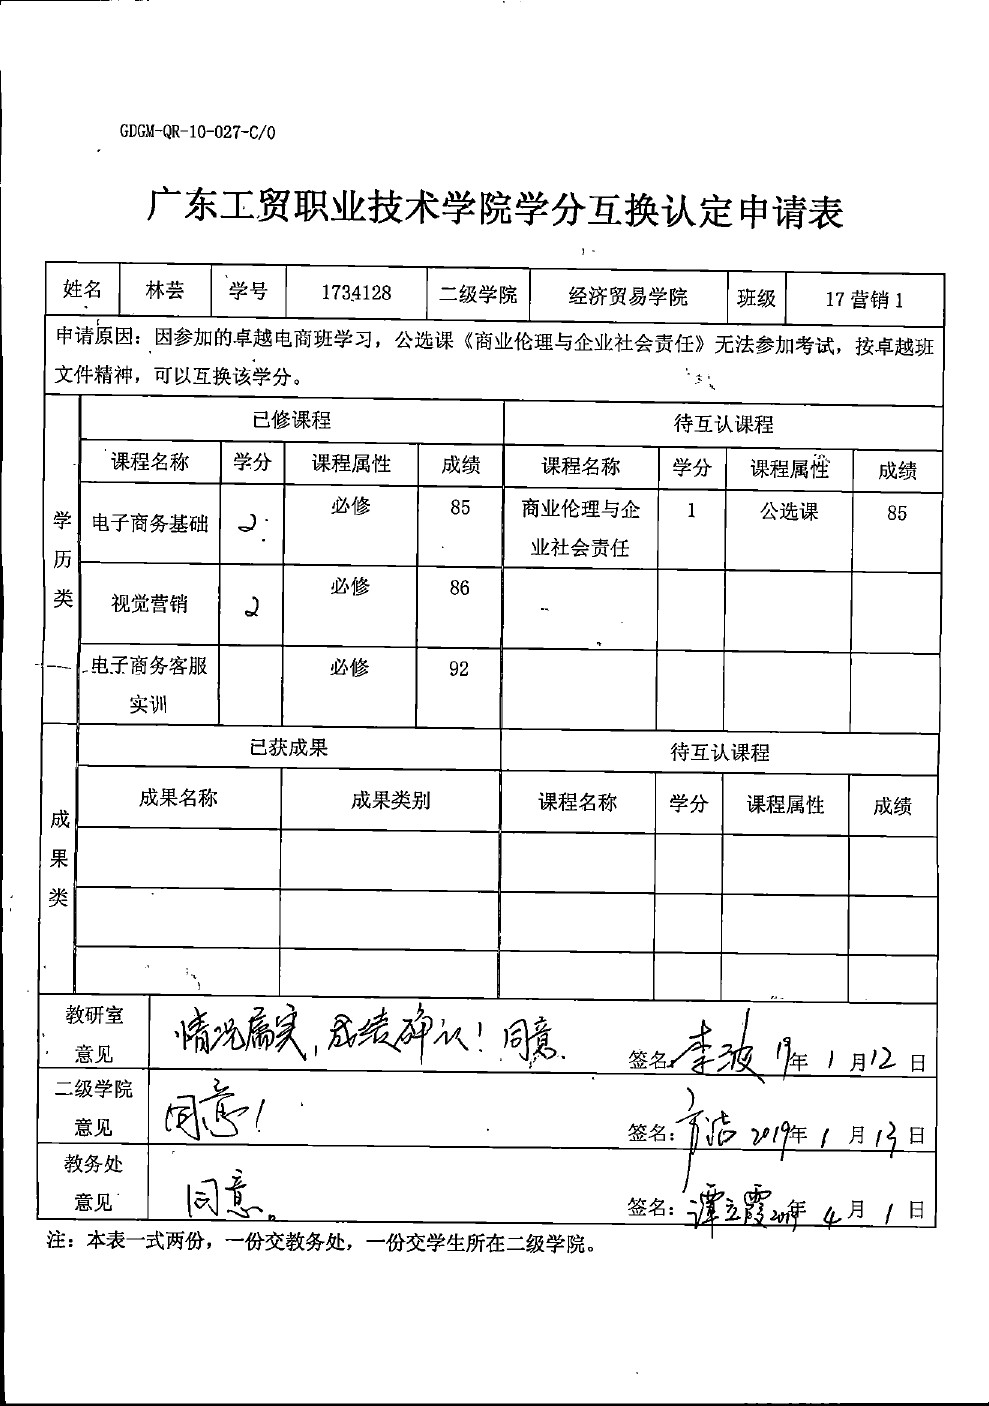 GDGM-QR-10-027-C/0
广东工贸职业技术学院学分互换认定申请表
姓名 林芸 学号 1734128 二级学院 经济贸易学院 班级 17 营销 1
申请原因：因参加的卓越电商班学习，公选课《商业伦理与企业社会责任》无法参加考试，按卓越班
文件精神，可以互换该学分。
学历类
已修课程 待互认课程
课程名称 学分 课程属性 成绩 课程名称 学分 课程属性 成绩
电子商务基础 2 必修 85 商业伦理与企 1 公选课 85
业社会责任
视觉营销 2 必修 86
电子商务客服 必修 92
实训
成果类
已获成果 待互认课程
成果名称 成果类别 课程名称 学分 课程属性 成绩
教研室
意见
情况属实，成绩确认！同意.
签名：李波 19年 1 月 12 日
二级学院
意见
同意！
签名：方洁 2019年 1 月 13 日
教务处
意见
同意。
签名：谭立霞 2019年 4 月 1 日
注：本表一式两份，一份交教务处，一份交学生所在二级学院。